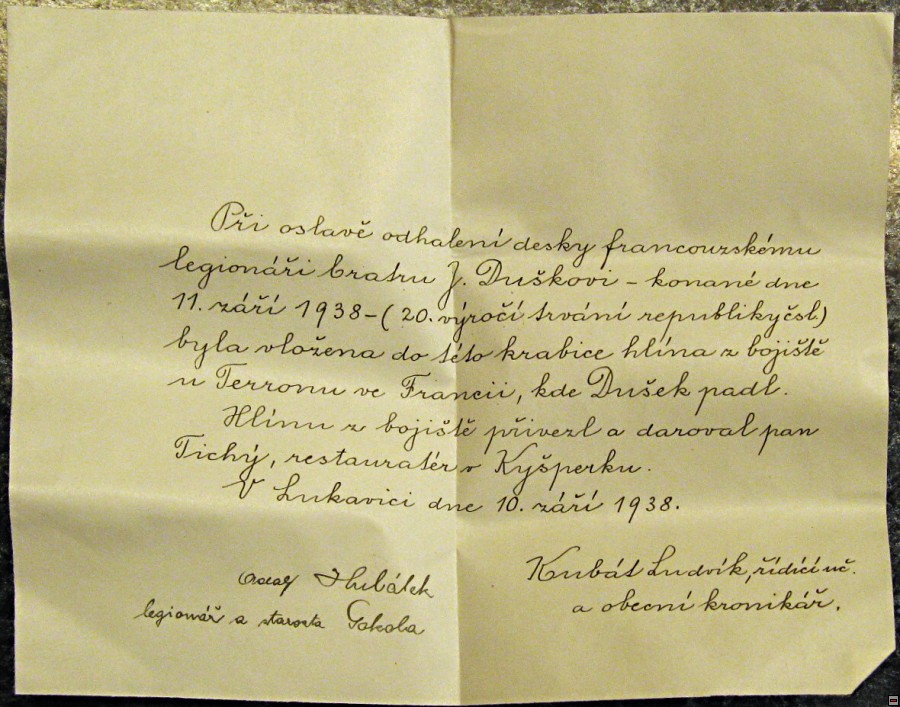 Při oslavě odhalení desky francouzskému
legionáři bratru J. Duškovi - konané dne
11. září 1938 - (20. výročí trvání republiky čsl.)
byla vložena do této krabice hlína z bojiště
u Terronu ve Francii, kde Dušek padl.
Hlínu z bojiště přivezl a daroval pan
Tichý, restauratér v Kyšperku.
V Lukavici dne 10. září 1938.
Kubát Ludvík, řídící uč.
a obecní kronikář.
legionář a starosta Sokola